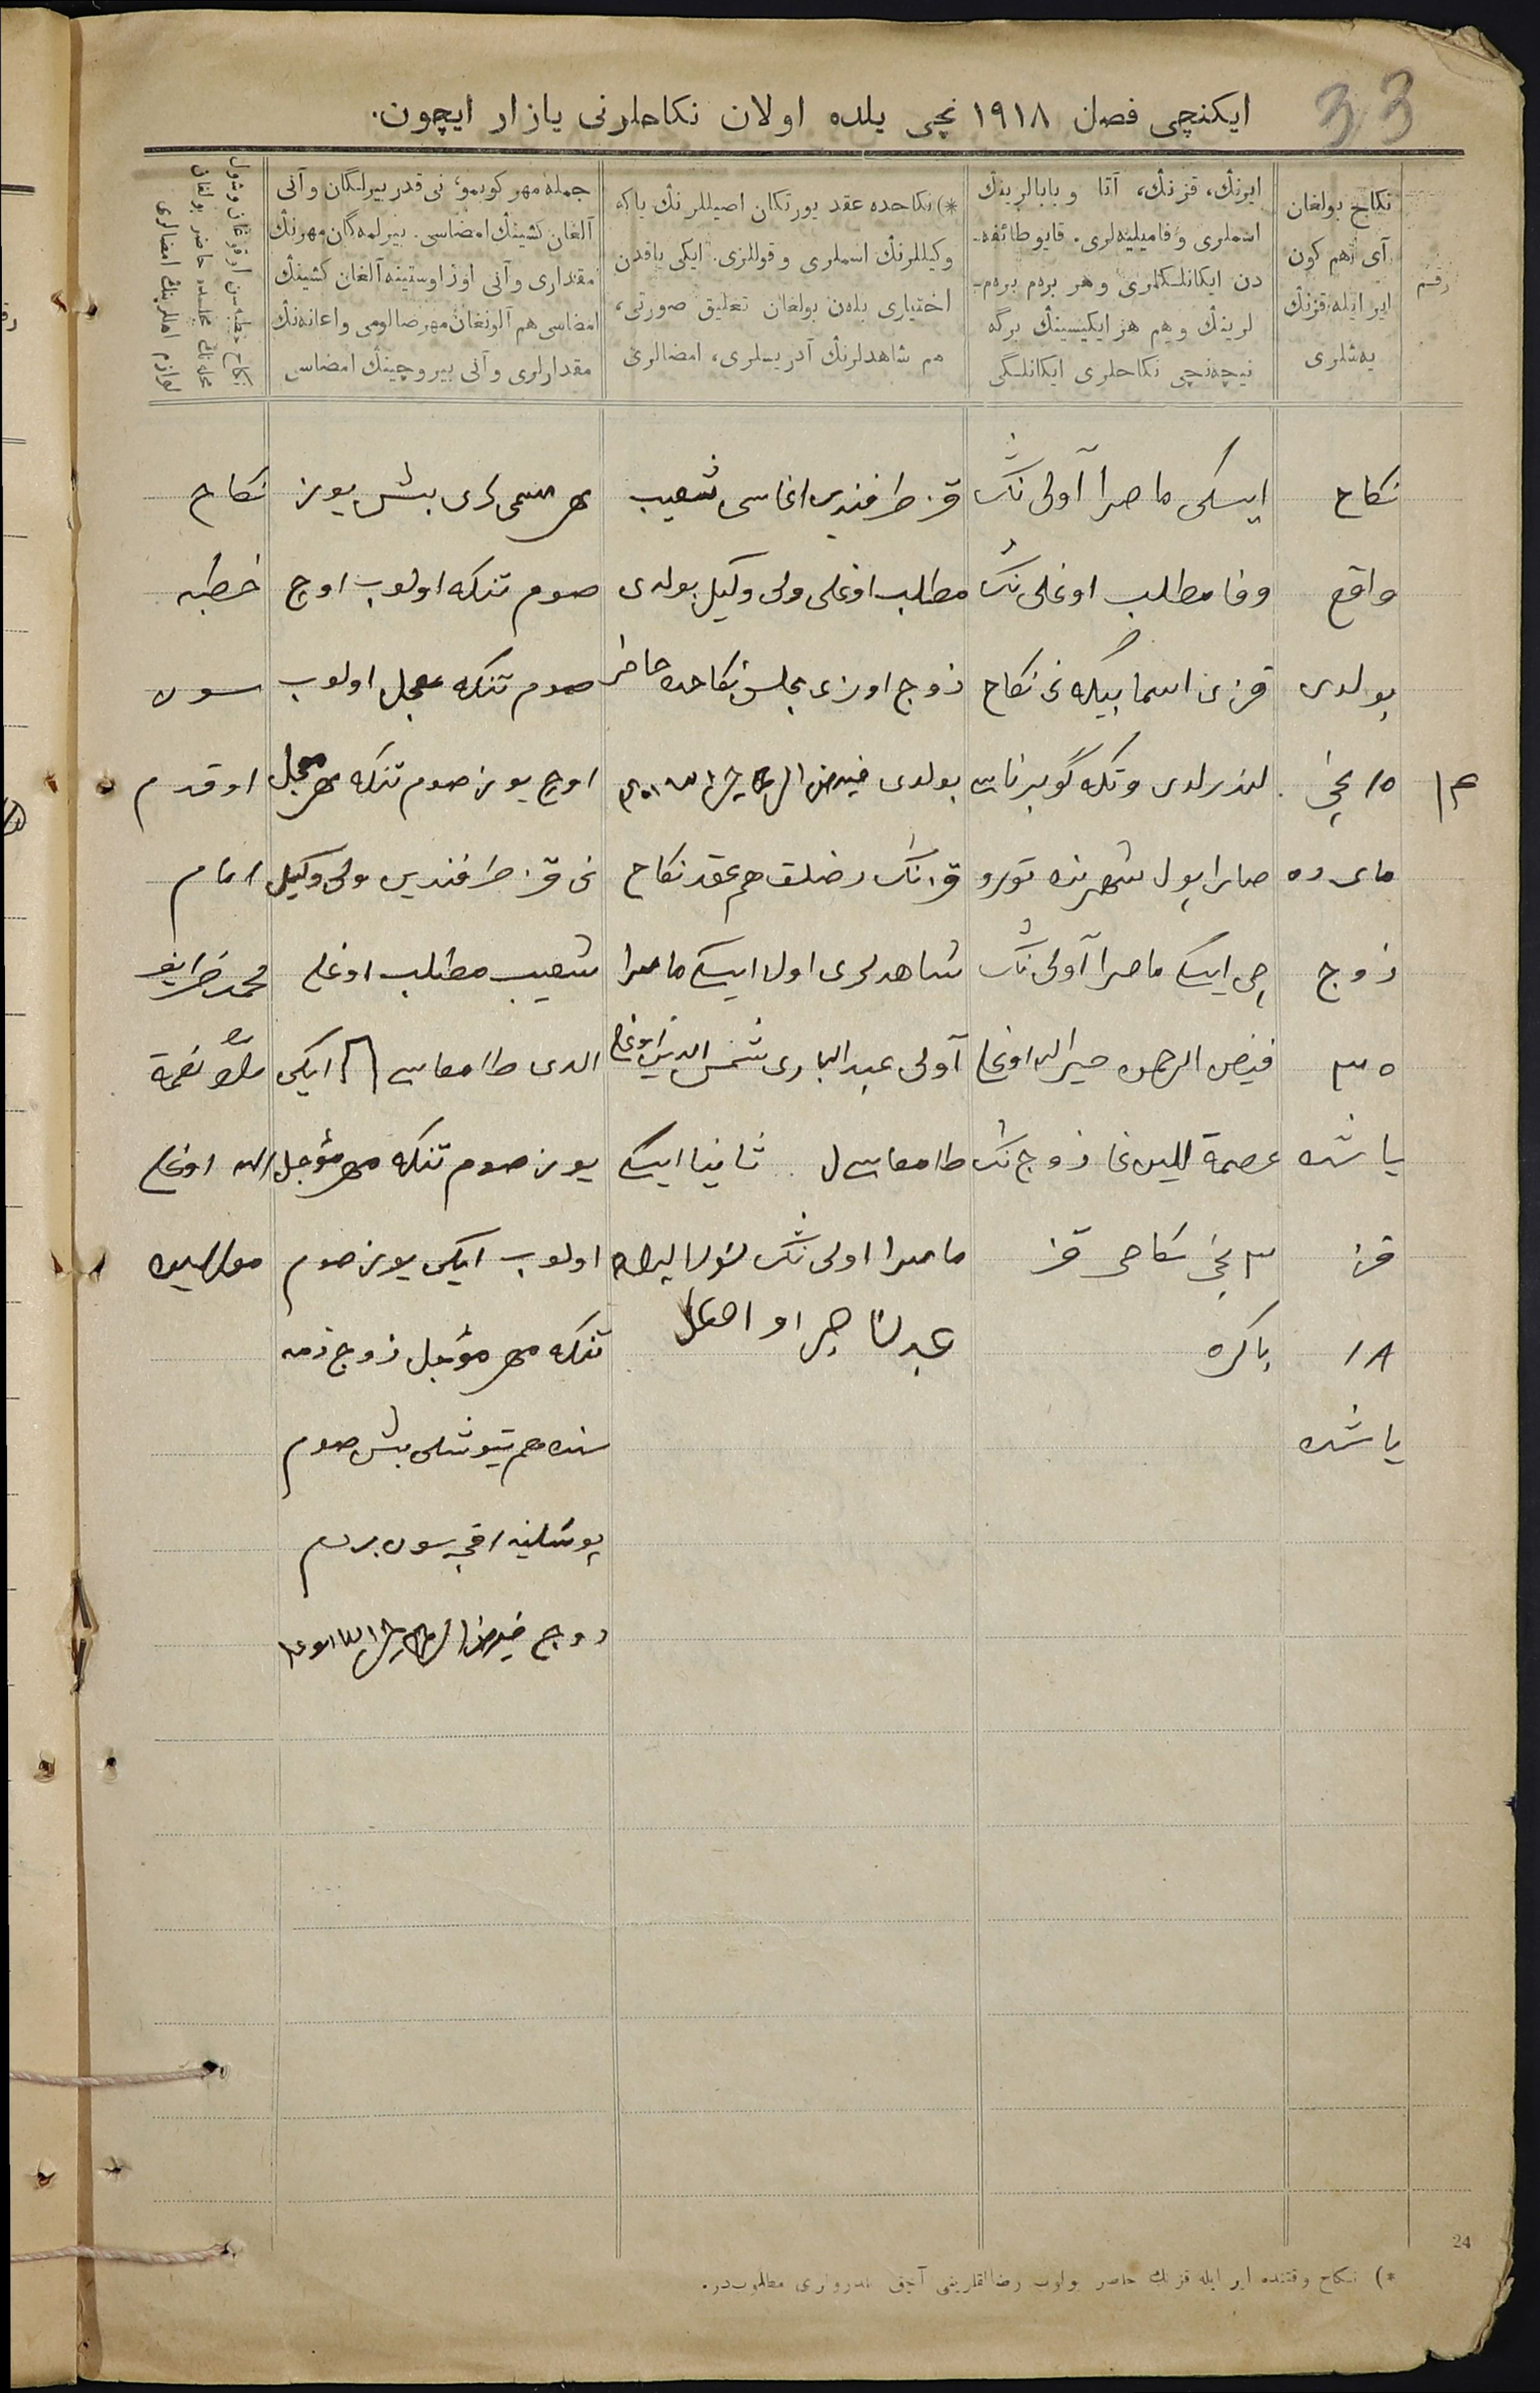 33
ایکنچی فصل ۱۹۱۸ نچی یلده اولان نکاحلرنی یازار ایچون.
رقم
نکاح بولغان
آی هم کون
ایر ایله قزنڭ
یه‌شلری
ایرنڭ، قزنڭ، آتا و بابالرینڭ
اسملری و فامیلیه‌لری. قایو طائفه‌-
دن ایکانلکلری و هر بره‌م بره‌م-
لرینڭ و هم هر ایکیسینڭ برگه
نیچه‌نچی نکاحلری ایکانلگی
*) نکاحده عقد یورتکان اصیللرنڭ یاکه
وکیللرنڭ اسملری و قوللری. ایکی یاقدن
اختیاری بله‌ن بولغان تعلیق صورتی،
هم شاهدلرنڭ آدریسلری، امضالری
جمله مهر کوبمو، نی قدر بیرلگان و آنی
آلغان کشینڭ امضاسی. بیرلمه‌گان مهرنڭ
مقداری و آنی اوز اوستینه آلغان کشینڭ
امضاسی هم آلونغان مهر صالومی و اعانه‌نڭ
مقدارلری و آنی بیروچینڭ امضاسی
نکاح خطبه‌سن اوقوغان و شول
مجلسده حاضر بولغان
لوازم اهللرینڭ امضالری
۱۳
نکاح
واقع
بولدی
۱۵ نچی
مای ده
زوج
۳۵
یاشده
قز
۱۸
یاشده
ایسکی ماصرا آولی ننڭ
وفا مطلب اوغلی ننڭ
قزی اسما بیکه نی نکاح
لندرلدی وتکه گوبرناسی
صاراپول شهرنده تورو
چی ایسکی ماصرا آولی ننڭ
فیض الرحمن خیرالله اوغلی
عصمة اللین غا زوج ننڭ
۳ نچی نکاحی قز
باکره
قز طرفندین اغاسی شعیب
مطلب اوغلی ولی وکیل بولدی
زوج اوزی مجلس نکاحده حاضر
بولدی فیض الرحمن خیرالله
قزننڭ رضالق هم عقد نکاح
شاهدلری اولا ایسکی ماصرا
آولی عبدالباری شمس الدین اوغلی
طامغاسی ل ثانیا ایسکی
ماصرا اولی ننڭ
مهر مسمی لری بیش یوز
صوم تنکه اولوب اوچ
صوم تنکه معجل اولوب
اوچ یوز صوم تنکه مهر معجل
نی قز طرفندین ولی وکیل
شعیب مطلب اوغلی
الدی طامغاسی П ایکی
یوز صوم تنکه مهر مؤجل
اولوب ایکی یوز صوم
تنکه مهر مؤجل زوج ذمه
سنده هم تیوشلی بیش صوم
پوشلینه اقچه سون بردم
زوج فیض الرحمن خیرالله اوغلی
نکاح
خطبه
سون
اوقدم
امام
محمد
ملا نعمة
الله اوغلی
24
*) نکاح وقتنده ایر ایله قزنڭ حاضر بولوب رضالقلرینی آچق بلدرولری مطلوبدر.